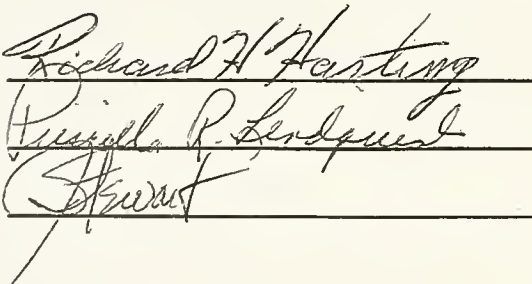 Richard H Harting
Priscilla R. Lindquist
Stewart